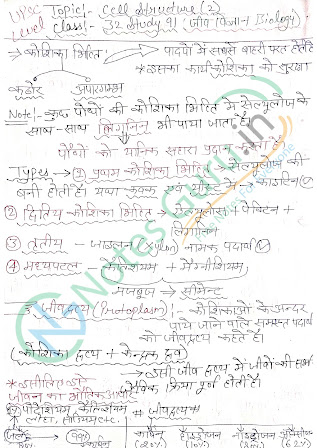 UPSC Topic:- Cell Structure (2)
Level Class:- 32 Study 91 : जीव विज्ञान Biology)
→ कोशिका भित्ति → पादपों में सबसे बाहरी परत होती है
* इसका कार्य कोशिका को सुरक्षा
कठोर अपारगम्य
Note:- कुछ पौधों की कोशिका भित्ति में सेल्यूलोज के
साथ-साथ लिग्निन भी पाया जाता है।
पौधों को यांत्रिक सहारा प्रदान करता है
Types → ① प्रथम कोशिका भित्ति → सेल्यूलोज की
बनी होती है। यथा कवक
② द्वितीय कोशिका भित्ति → सेल्यूलोज + पेक्टिन +
लिग्निन
③ तृतीय - जाइलन (Xylan) नामक पदार्थ
④ मध्यपटल - कैल्शियम + मैग्नीशियम
मजबूत → सीमेन्ट
जीवद्रव्य (Protoplasm) :- कोशिकाओं के अन्दर
पाये जाने वाले समस्त पदार्थ
को जीवद्रव्य कहते हैं।
(कोशिका द्रव्य + केन्द्रक द्रव्य)
इसी जीव द्रव्य में जीवों की सभी
* इसीलिए इसे जैविक क्रिया पूर्ण होती है।
जीवन का भौतिक आधार
पोटैशियम, कैल्शियम # जीवद्रव्य
लोहा, etc.
जल कार्बन हाइड्रोजन
Notes Guru.in